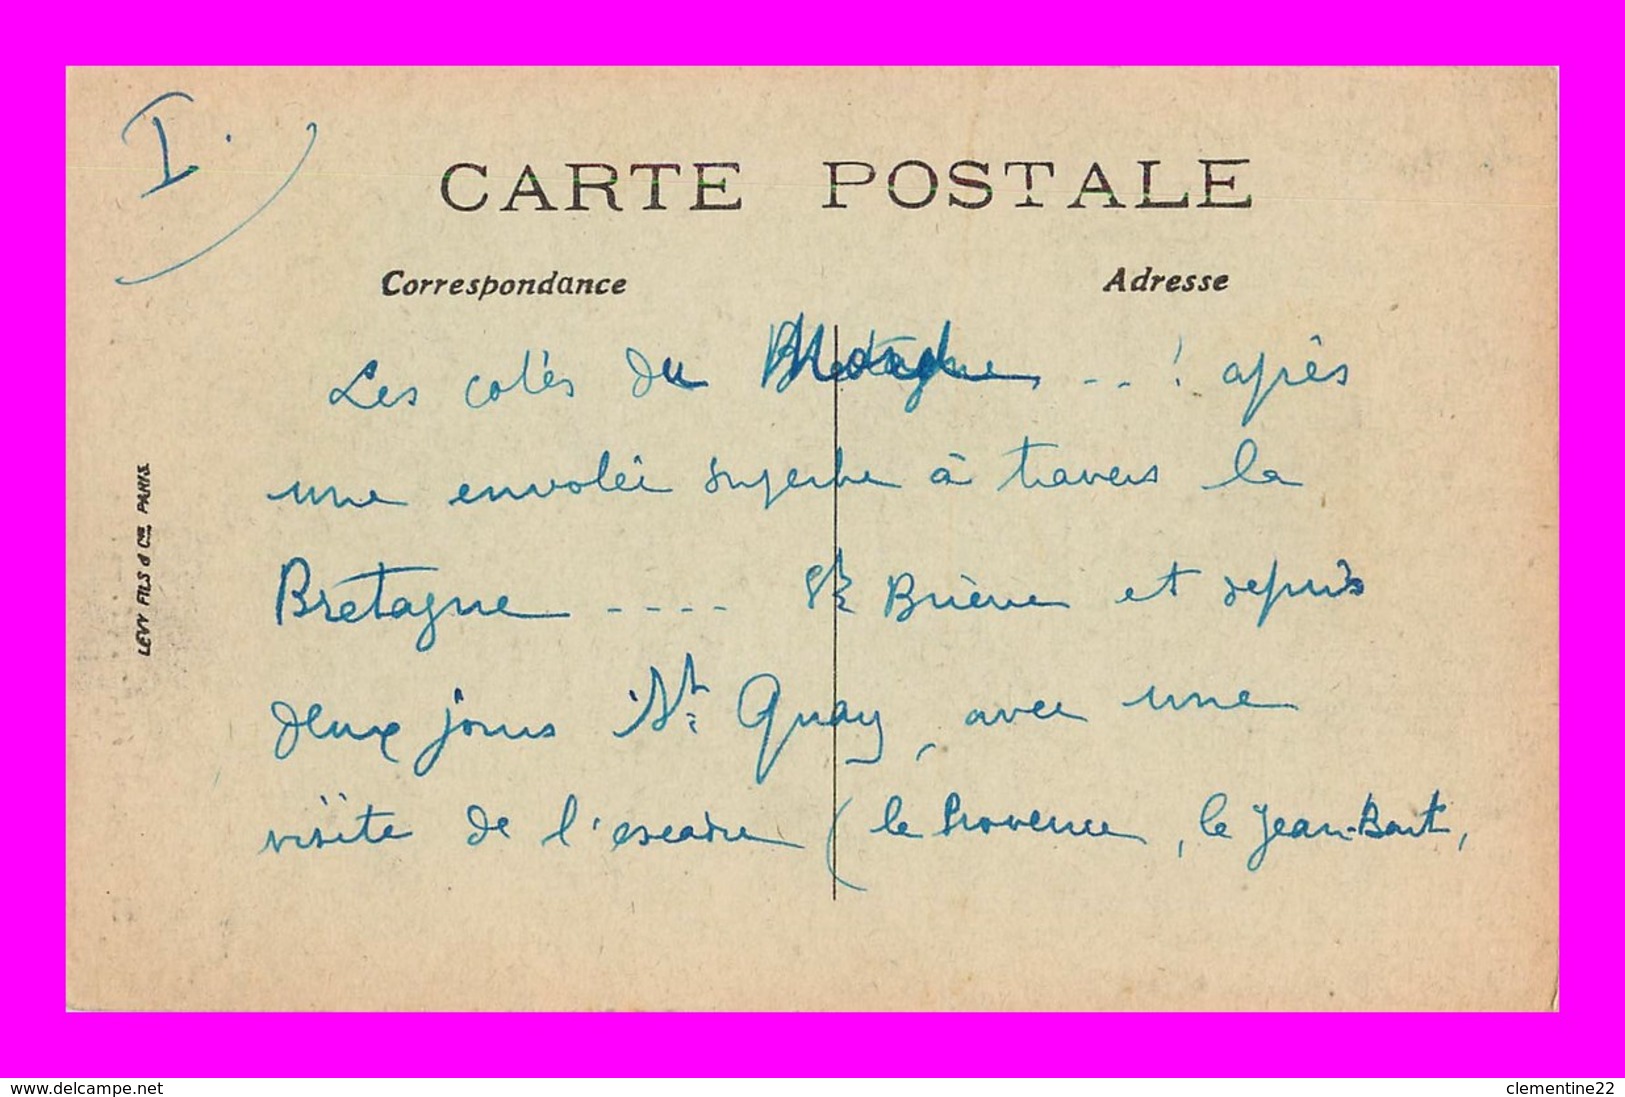 I.
CARTE POSTALE
Correspondance
Adresse
Les cotés du --! après
une envolée superbe à travers la
Bretagne ---- St Brieuc et depuis
deux jours St Quay, avec une
visite de l'escadre (le Provence, le Jean-Bart,
LEVY FILS & Cie PARIS
www.delcampe.net
clementine22